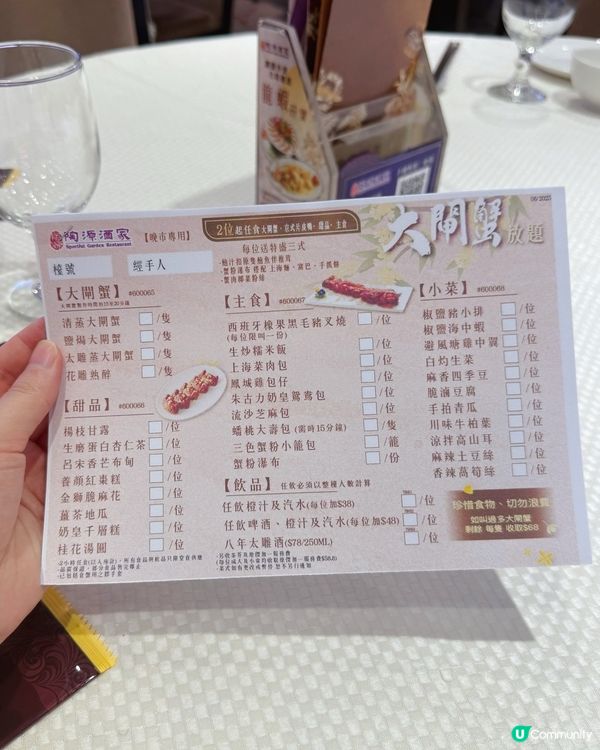 陶源酒家
Sportful Garden Restaurant
【晚市專用】
2位起任食大閘蟹、京式片皮鴨、甜品、主食
06/2025
大閘蟹放題
檯號
經手人
每位送特盛三式
【大閘蟹】#600065
清蒸大閘蟹 /隻
鹽焗大閘蟹 /隻
太雕蒸大閘蟹 /隻
花雕熟醉 /隻
【甜品】#600066
楊枝甘露 /位
生磨蛋白杏仁茶 /位
呂宋香芒布甸 /位
養顏紅棗糕 /位
金獅脆麻花 /位
薑茶地瓜 /位
奶皇千層糕 /位
桂花湯圓 /位
【主食】#600067
西班牙橡果黑毛豬叉燒 /位
(每位限叫一份)
生炒糯米飯 /位
上海菜肉包 /位
鳳城雞包仔 /位
朱古力奶皇鴛鴦包 /位
流沙芝麻包 /位
蟠桃大壽包(需時15分鐘) /隻
三色蟹粉小籠包 /籠
蟹粉瀑布 /份
【飲品】任飲必須以整檯人數計算
任飲橙汁及汽水(每位加$38) /位
任飲啤酒、橙汁及汽水(每位加$48) /位
八年太雕酒($78/250ML) /位
【小菜】#600068
椒鹽豬小排 /位
椒鹽海中蝦 /位
避風塘雞中翼 /位
白灼生菜 /位
麻香四季豆 /位
脆滷豆腐 /位
手拍青瓜 /位
川味牛柏葉 /位
涼拌高山耳 /位
麻辣土豆絲 /位
香辣萵筍絲 /位
珍惜食物、切勿浪費
如叫過多大閘蟹
剩餘 每隻 收取$68
U Community